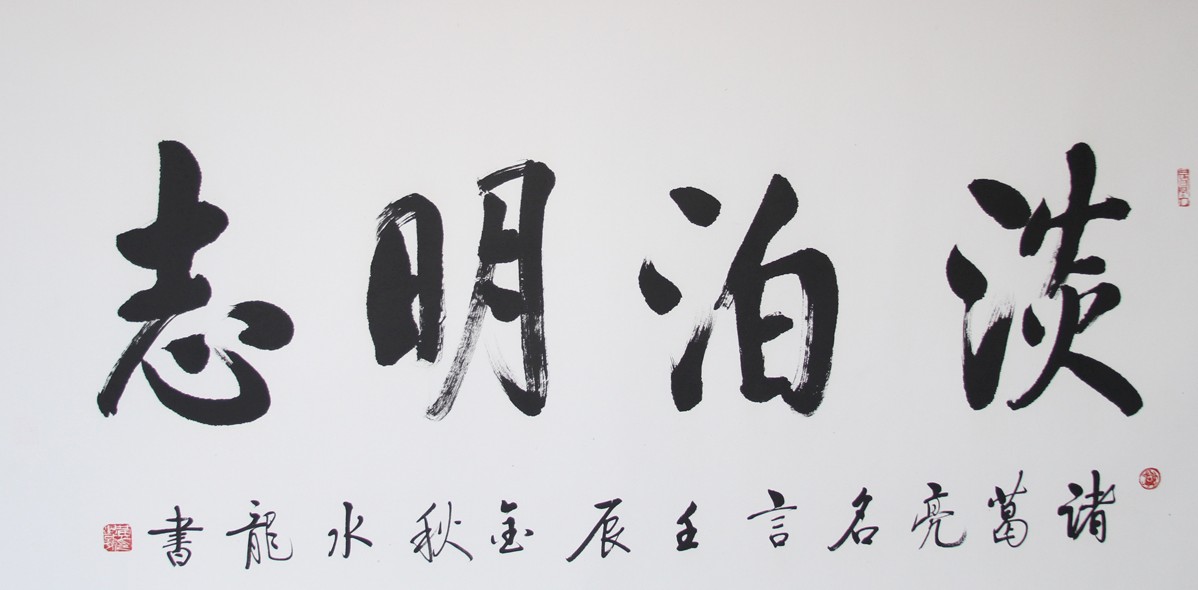 淡泊明志
諸葛亮名言壬辰金秋水龍書